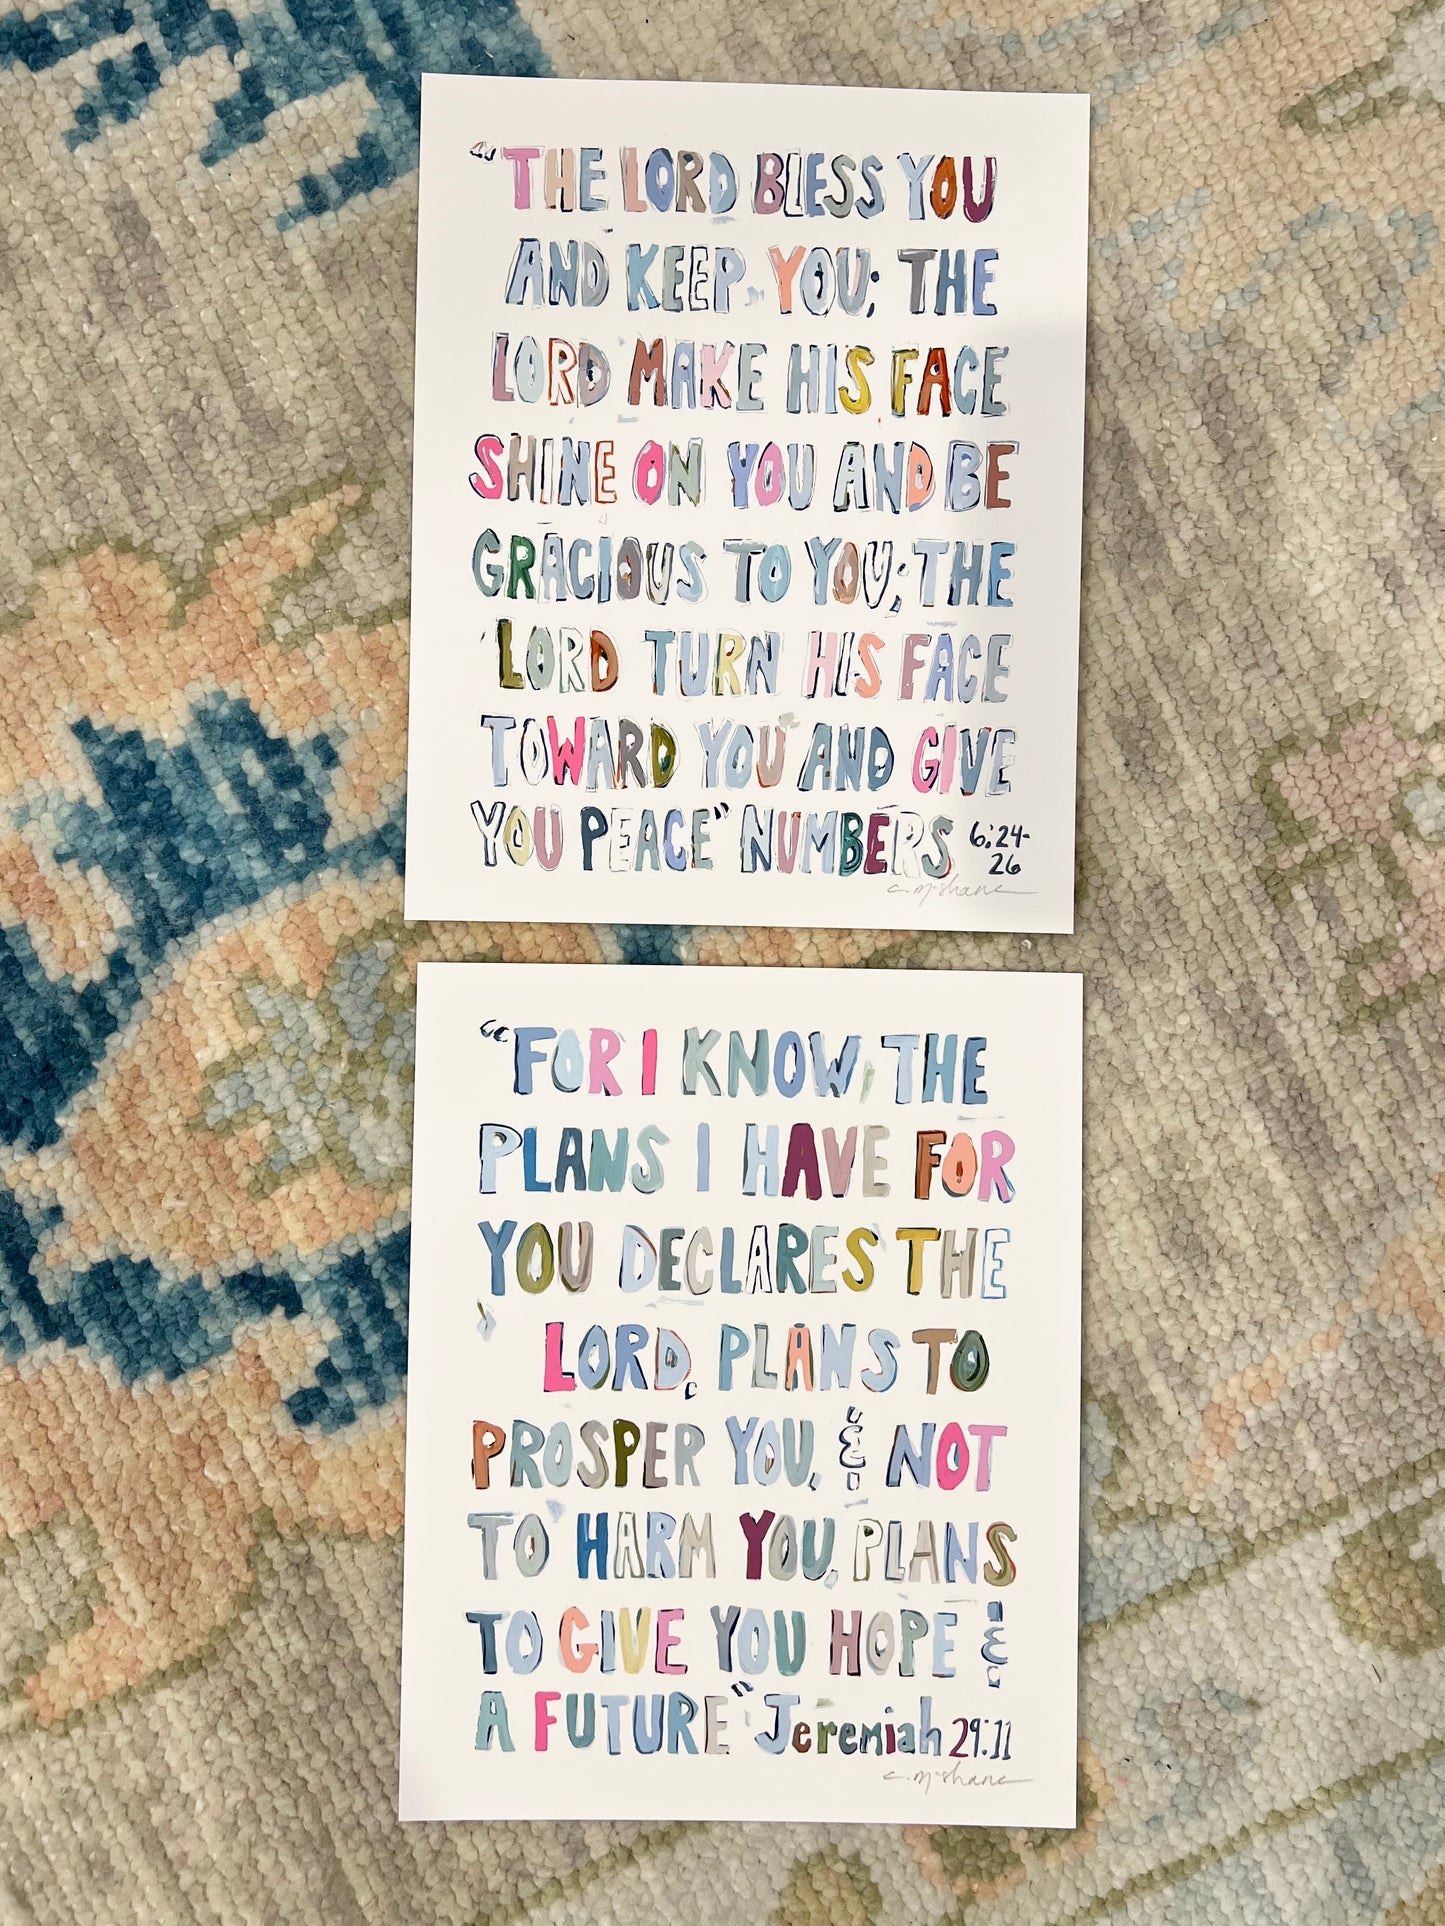 “THE LORD BLESS YOU
AND KEEP YOU; THE
LORD MAKE HIS FACE
SHINE ON YOU AND BE
GRACIOUS TO YOU; THE
LORD TURN HIS FACE
TOWARD YOU AND GIVE
YOU PEACE” NUMBERS 6:24-
26
c. mcshane
“FOR I KNOW, THE
PLANS I HAVE FOR
YOU DECLARES THE
LORD, PLANS TO
PROSPER YOU, & NOT
TO HARM YOU, PLANS
TO GIVE YOU HOPE &
A FUTURE” Jeremiah 29:11
c. mcshane